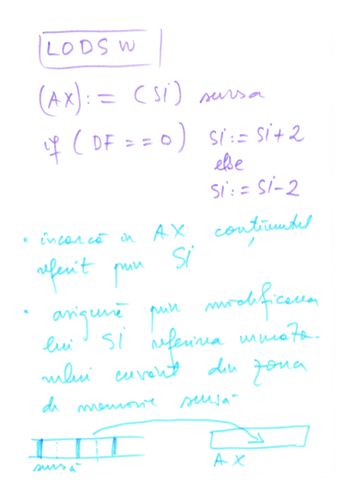 LODSW
(AX) := (SI) sursa
if (DF == 0) SI := SI+2
else
SI := SI-2
• incarcă in AX conținutul
referit prin SI
• asigură prin modificarea
lui SI referirea urmato-
rului cuvânt din zona
de memorie sursă
sursă
AX